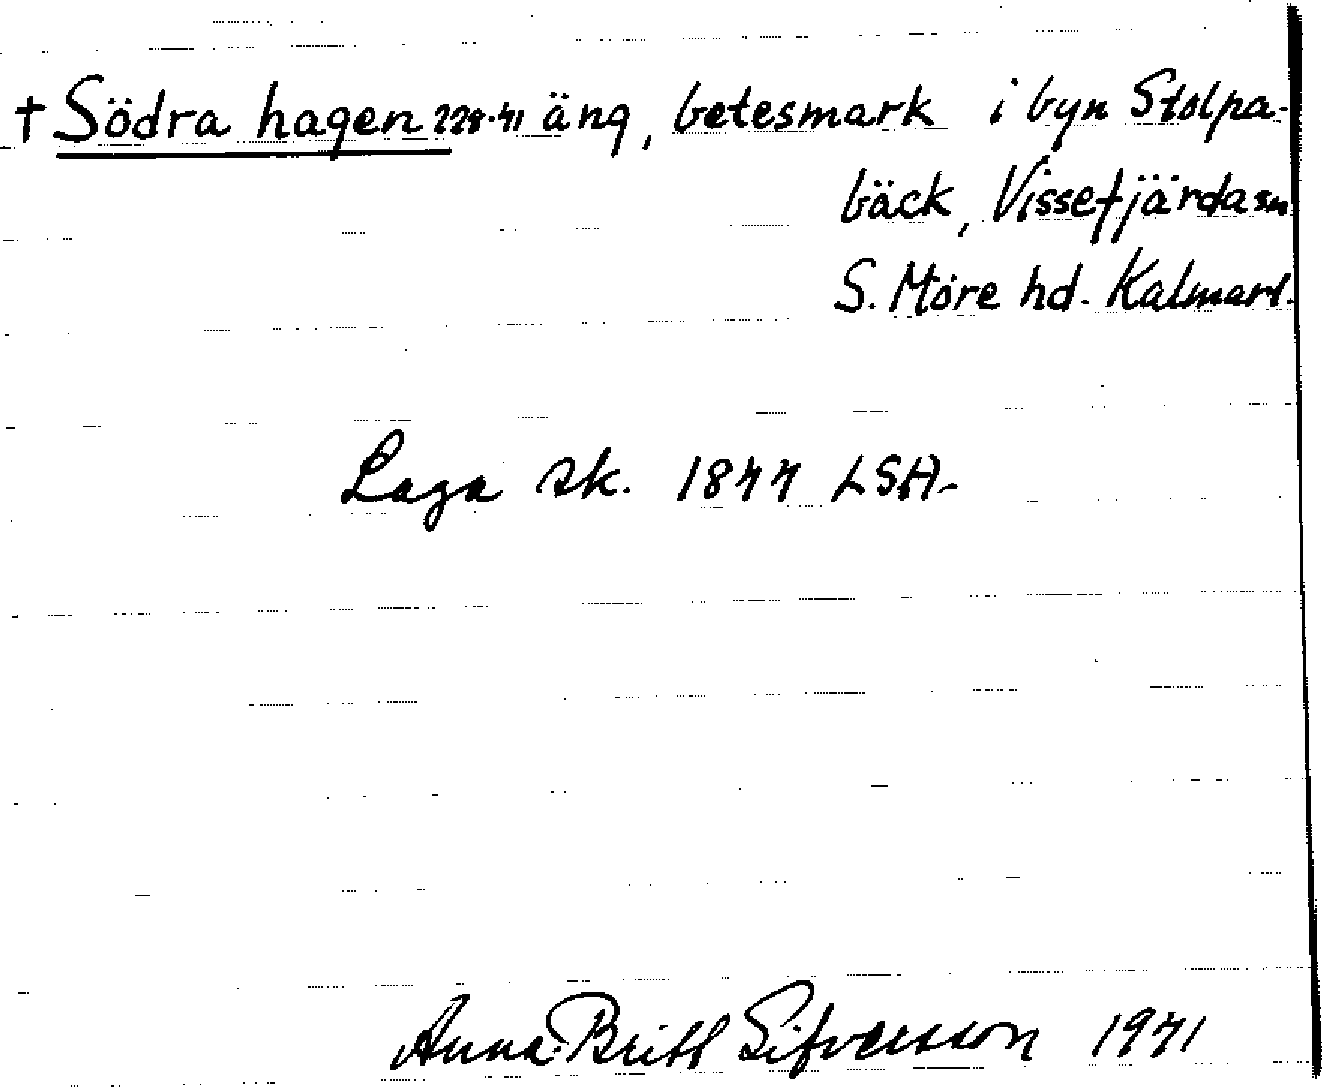 † Södra hagen 228-41 äng, betesmark i byn Stolpa-
bäck, Vissefjärda sn
S. Möre hd. Kalmar l.
Laga sk. 1877 LSA-
Anna-Britt Sifversson 1971